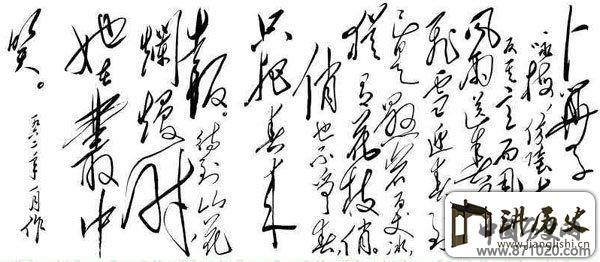 卜算子
詠梅
反其意而用
風雨送春
飛雪迎春到
已是懸岩百丈冰，
猶有花枝俏。
俏也不爭春
只把春来
報。待到山花
爛熳时
她在叢中
笑。
一九六二年一月作
讲历史
www.jianglishi.cn
www.871020.com